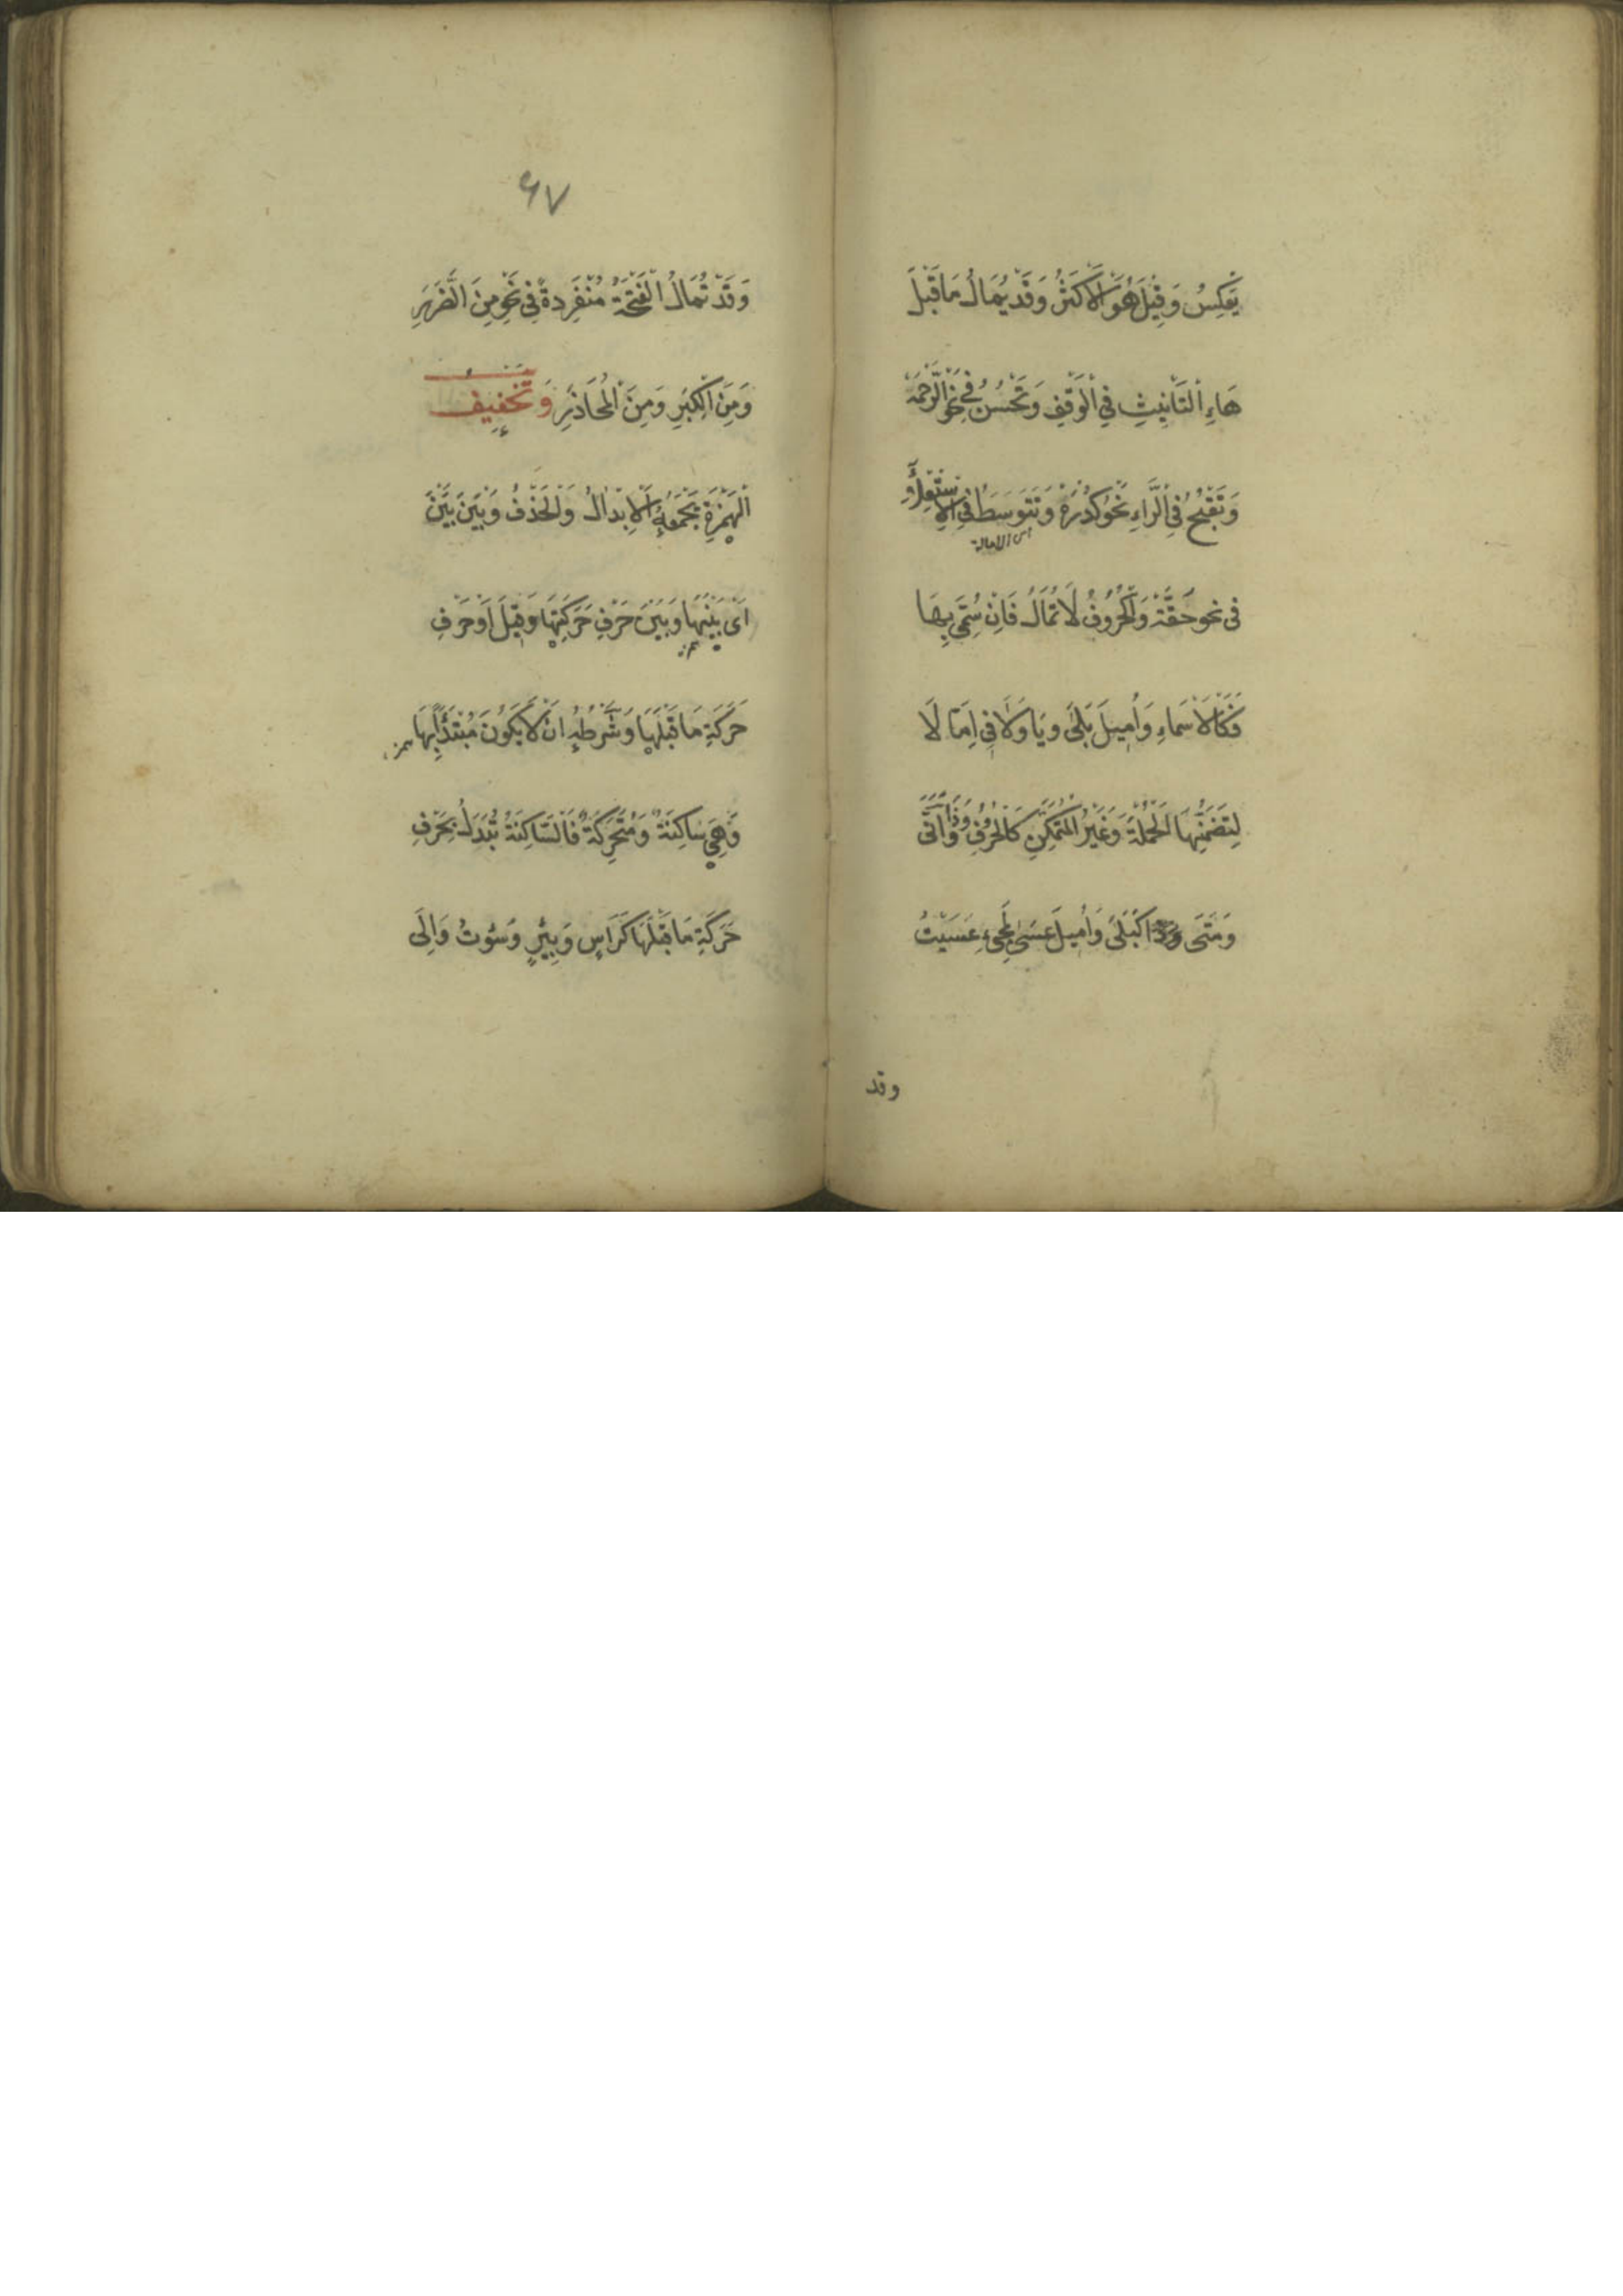 يَعْكِسُ وَقِيْلَ هُوَ الْاَكْثَرُ وَقَدْ يُمَالُ مَا قَبْلَ
هَاءِ التَّاْنِيْثِ فِي الْوَقْفِ وَتَحْسُنُ فِي نَحْوِ الرَّحْمَةْ
وَتَقْبُحُ فِي الرَّاءِ نَحْوُ كُدْرَةْ وَتَتَوَسَّطُ فِي الْاِسْتِعْلَاءِ
اى الامالة
فى نحو حِقَّةْ وَالْحُرُوْفُ لَا تُمَالُ فَاِنْ سُمِّيَ بِهَا
فَكَالْاَسْمَاءِ وَاُمِيْلَ بَلَى وَيَا وَلَا فِي اِمَّا لَا
لِتَضَمُّنِهَا الْجُمْلَةَ وَغَيْرُ الْمُتَمَكِّنِ كَالْحَرْفِ وَذَا وَاَنَّى
وَمَتَى كَبَلَى وَاُمِيْلَ عَسَى لِمَجِىءِ عَسَيْتُ
وقد
٦٧
وَقَدْ تُمَالُ الْفَتْحَةُ مُنْفَرِدَةً فِي نَحْوِ مِنَ الضَّرَرِ
وَمِنَ الْكِبَرِ وَمِنَ الْمُحَاذَرِ وَتَخْفِيْف
الْهَمْزَةِ يَجْمَعُهُ الْاِبْدَالُ وَالْحَذْفُ وَبَيْنَ بَيْنَ
اَىْ بَيْنَهَا وَبَيْنَ حَرْفِ حَرَكَتِهَا وَقِيْلَ اَوْ حَرْفِ
حَرَكَةِ مَا قَبْلَهَا وَشَرْطُهُ اَنْ لَا يَكُوْنَ مُبْتَدَأً بِهَا
وَهِيَ سَاكِنَةٌ وَمُتَحَرِّكَةٌ فَالسَّاكِنَةُ تُبْدَلُ بِحَرْفِ
حَرَكَةِ مَا قَبْلَهَا كَرَاسٍ وَبِيْرٍ وَسُوْتُ وَاِلَى